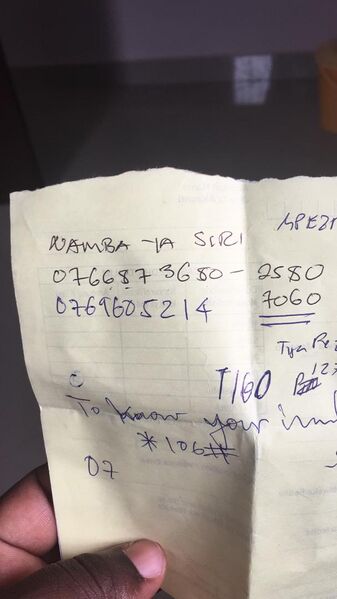 NAMBA YA SIRI
0766873680 - 2580
0769605214 7060
TIGO
To know your
*106#
07